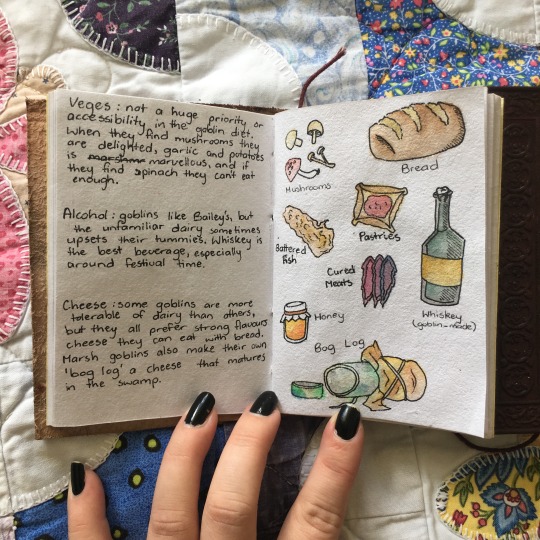 Veges: not a huge priority, or
accessibility in the goblin diet,
When they find mushrooms they
are delighted, garlic and potatoes
is marvellous, and if
they find spinach they can't eat
enough.
Alcohol: goblins like Bailey's, but
the unfamiliar dairy sometimes
upsets their tummies. Whiskey is
the best beverage, especially
around festival time.
Cheese: some goblins are more
tolerable of dairy than others,
but they all prefer strong flavours
cheese they can eat with bread.
Marsh goblins also make their own
'bog log' a cheese that matures
in the swamp.
Mushrooms
Bread
Battered
Fish
Pastries
Cured
Meats
Whiskey
(goblin-made)
Honey
Bog Log